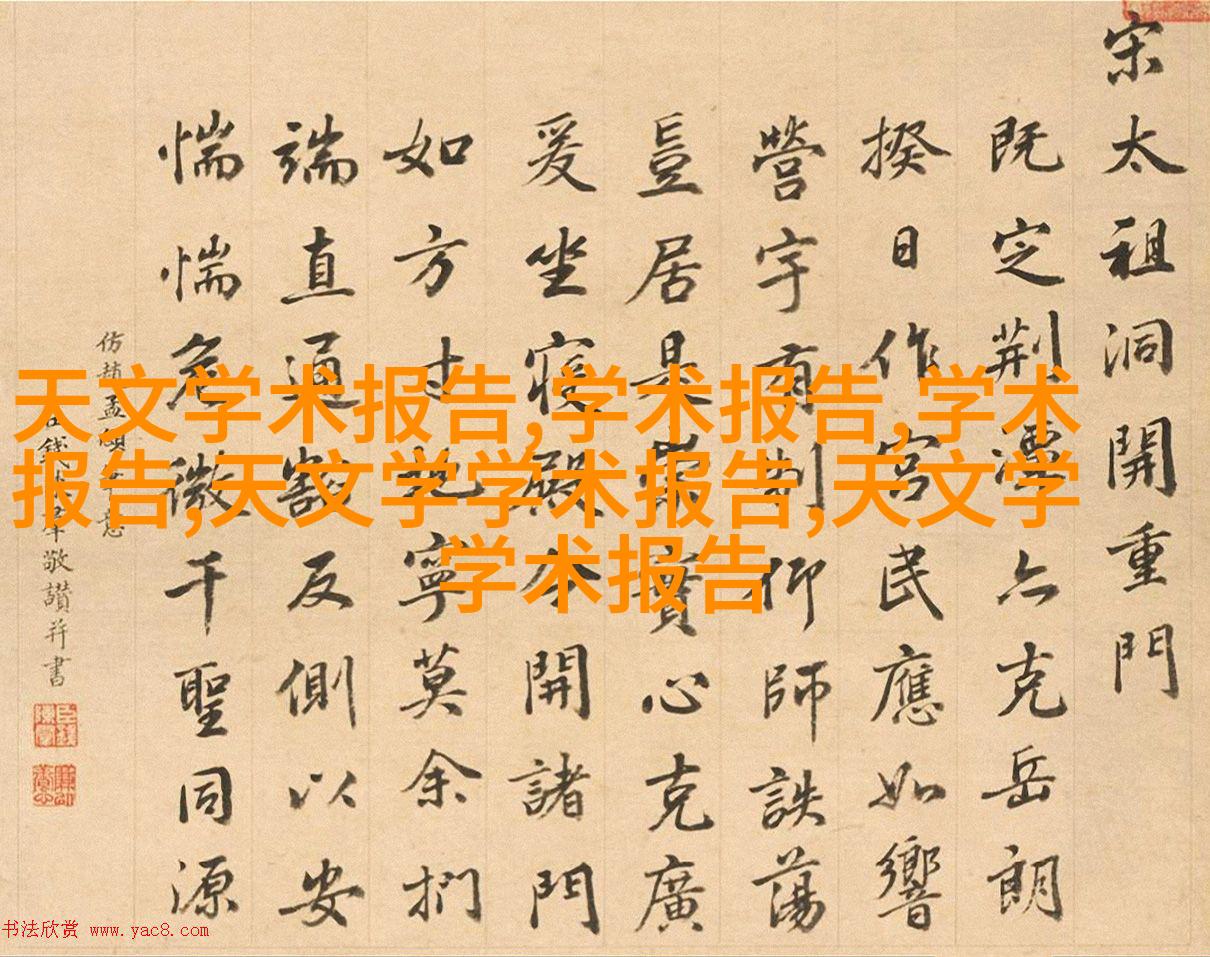 宋太祖洞開重門
既定荆 六克岳朗
揆日作宮民應如響
營宇有 仰師詄蕩
豈居是 實心克廣
爰坐寝殿令開諸門
如方寸 寧莫余捫
端直通 反側以安
惴惴危微千聖同源
仿趙孟
敬讃并書
天文学术报告,学术报告,学术
报告,天文学学术报告,天文学
学术报告
书法欣赏 www.yac8.com